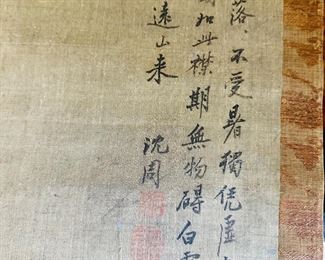 落、不受暑獨凭虛
如此襟期無物碍白雲
遠山来
沈周